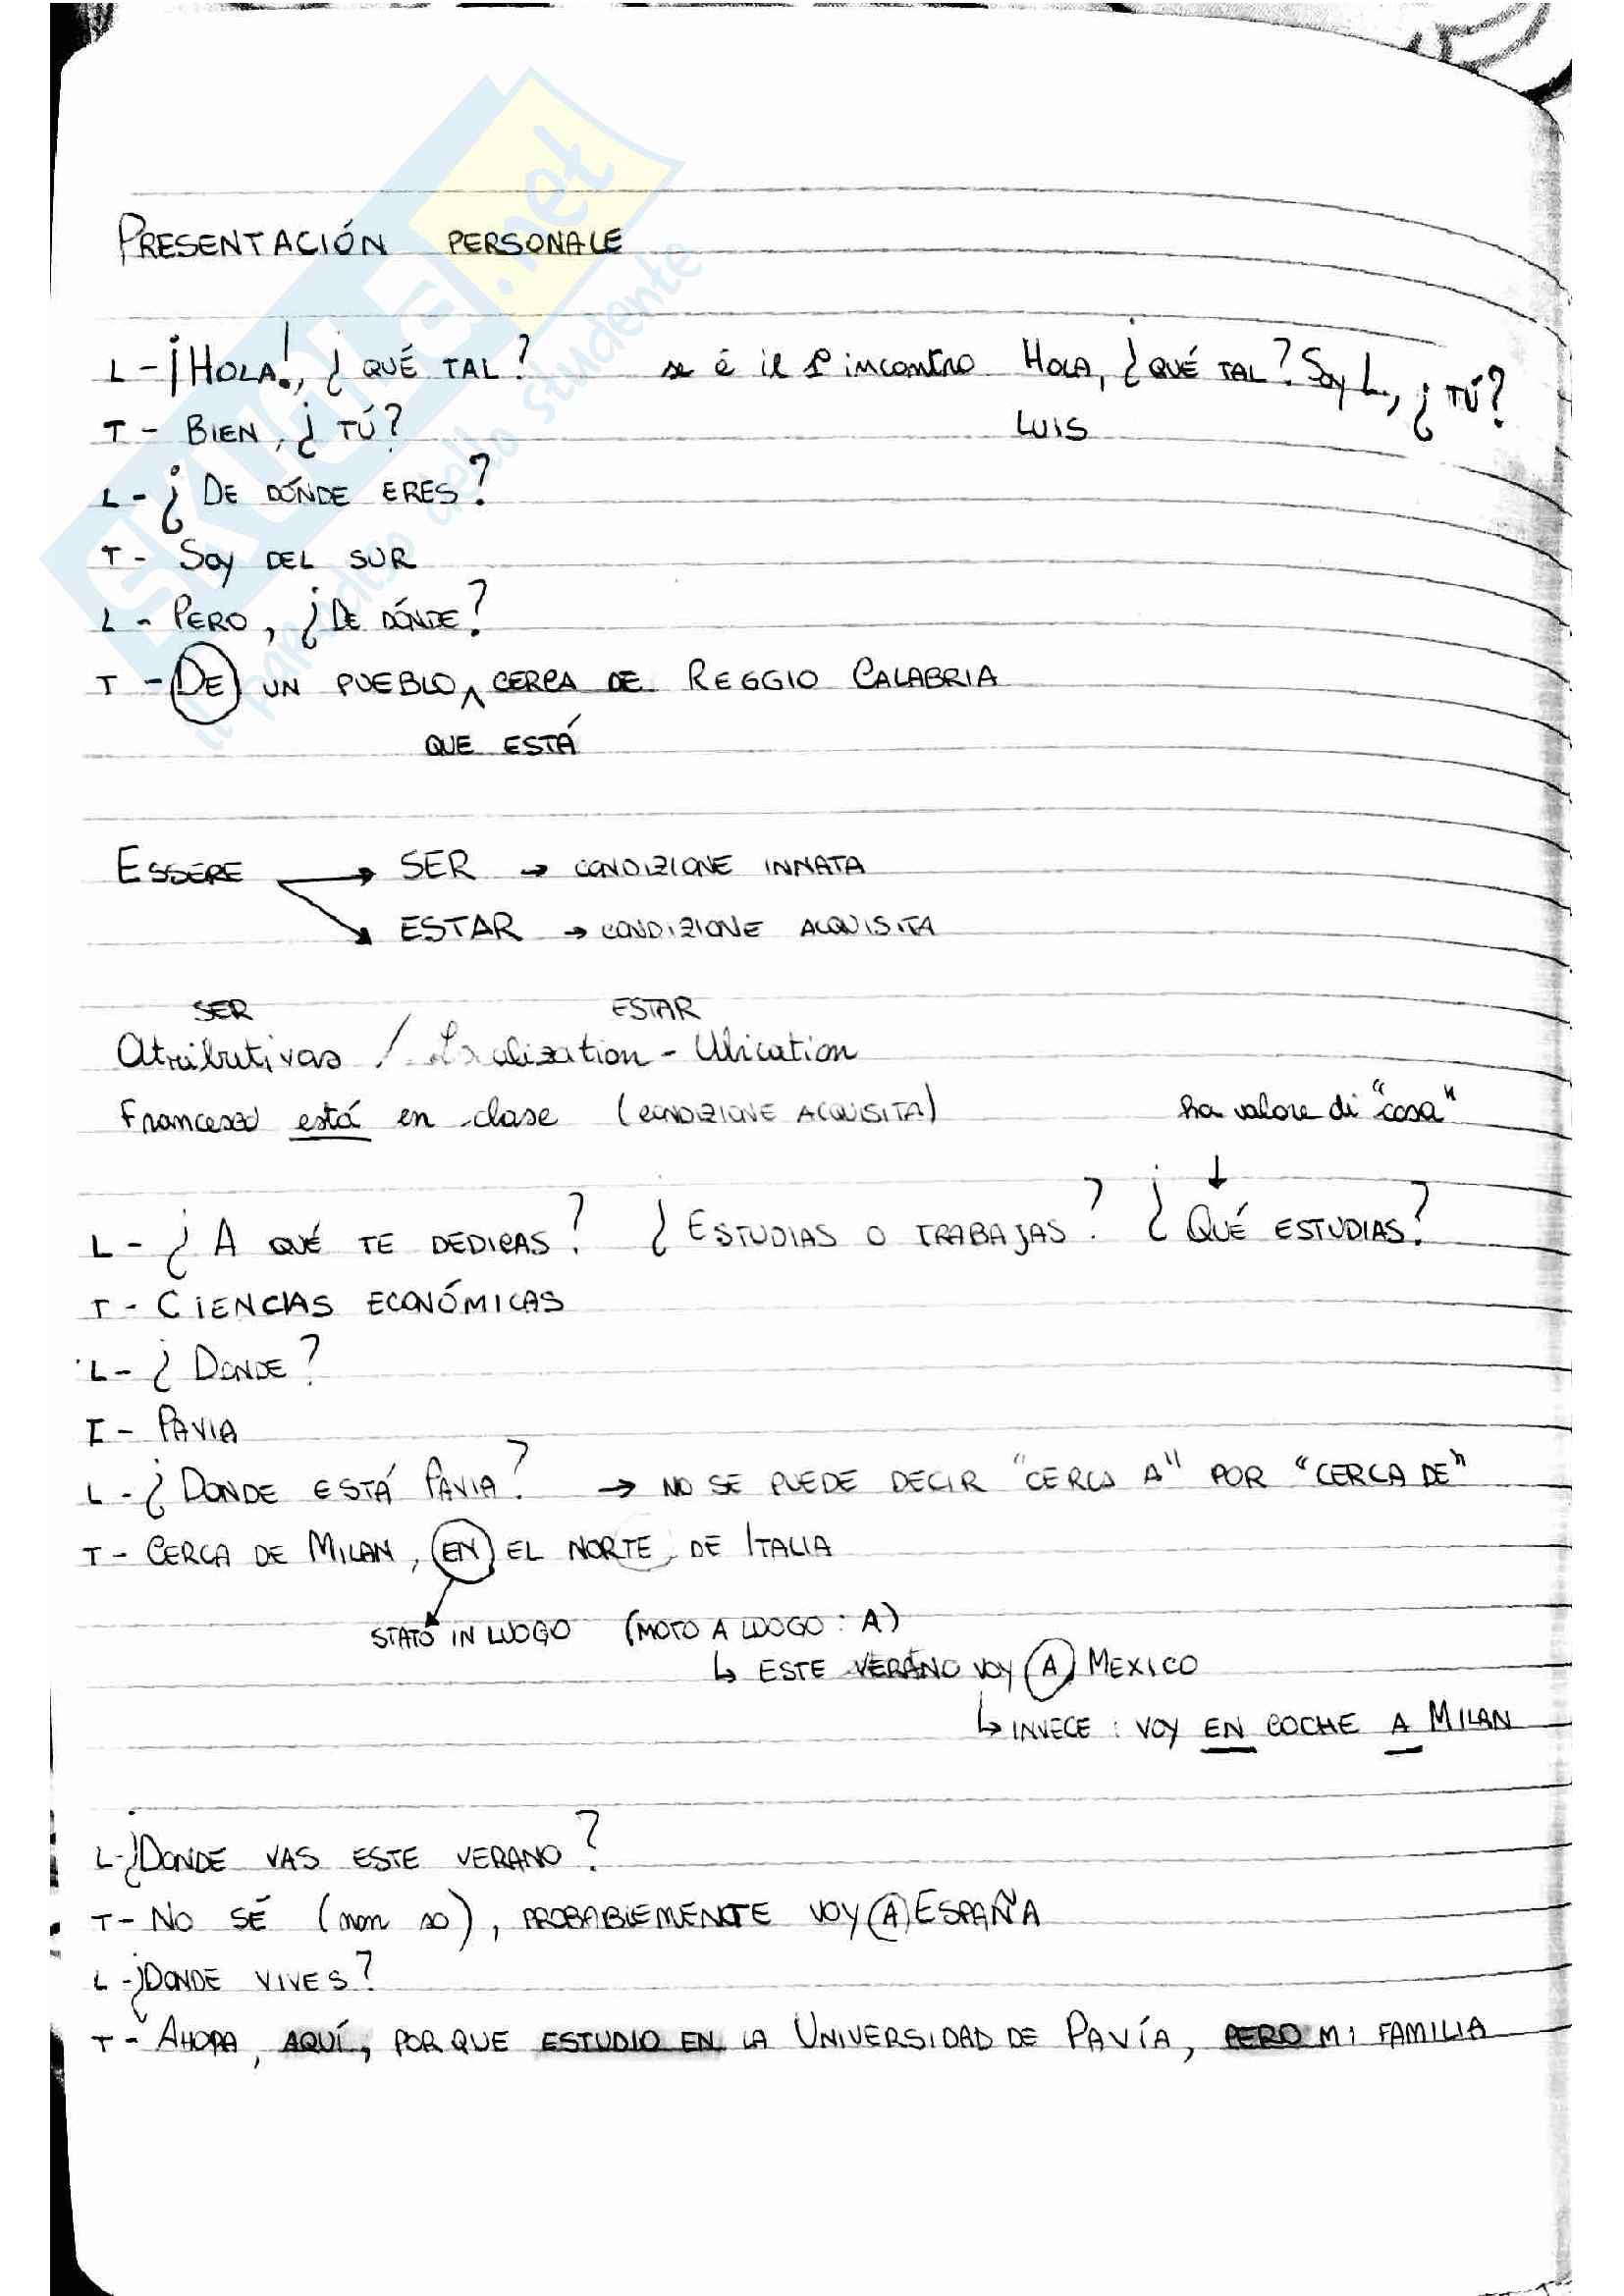 PRESENTACIÓN PERSONALE
L - ¡HOLA!, ¿QUÉ TAL? se è il 1° incontro HOLA, ¿QUÉ TAL? Soy L, ¿TÚ?
T - BIEN, ¿TÚ? LUIS
L - ¿DE DÓNDE ERES?
T - Soy DEL SUR
L - PERO, ¿DE DÓNDE?
T - DE UN PUEBLO ^ CERCA DE REGGIO CALABRIA
QUE ESTÁ
ESSERE → SER → CONDIZIONE INNATA
→ ESTAR → CONDIZIONE ACQUISITA
SER ESTAR
Atributivas / Localization - Ubication
Francesco está en clase (CONDIZIONE ACQUISITA) ha valore di "cosa"
↓
L - ¿A QUÉ TE DEDICAS? ¿ESTUDIAS O TRABAJAS? ¿QUÉ ESTUDIAS?
T - CIENCIAS ECONÓMICAS
L - ¿DONDE?
T - PAVIA
L - ¿DONDE ESTÁ PAVIA? → NO SE PUEDE DECIR "CERCA A" POR "CERCA DE"
T - CERCA DE MILAN, EN EL NORTE DE ITALIA
STATO IN LUOGO (MOTO A LUOGO: A)
↳ ESTE VERANO VOY A MEXICO
↳ INVECE: VOY EN COCHE A MILAN
L - ¿DONDE VAS ESTE VERANO?
T - NO SÉ (non so), PROBABLEMENTE VOY A ESPAÑA
L - ¿DONDE VIVES?
T - AHORA, AQUÍ, PORQUE ESTUDIO EN LA UNIVERSIDAD DE PAVÍA, PERO MI FAMILIA
SKUOLA.net
il paradiso dello studente